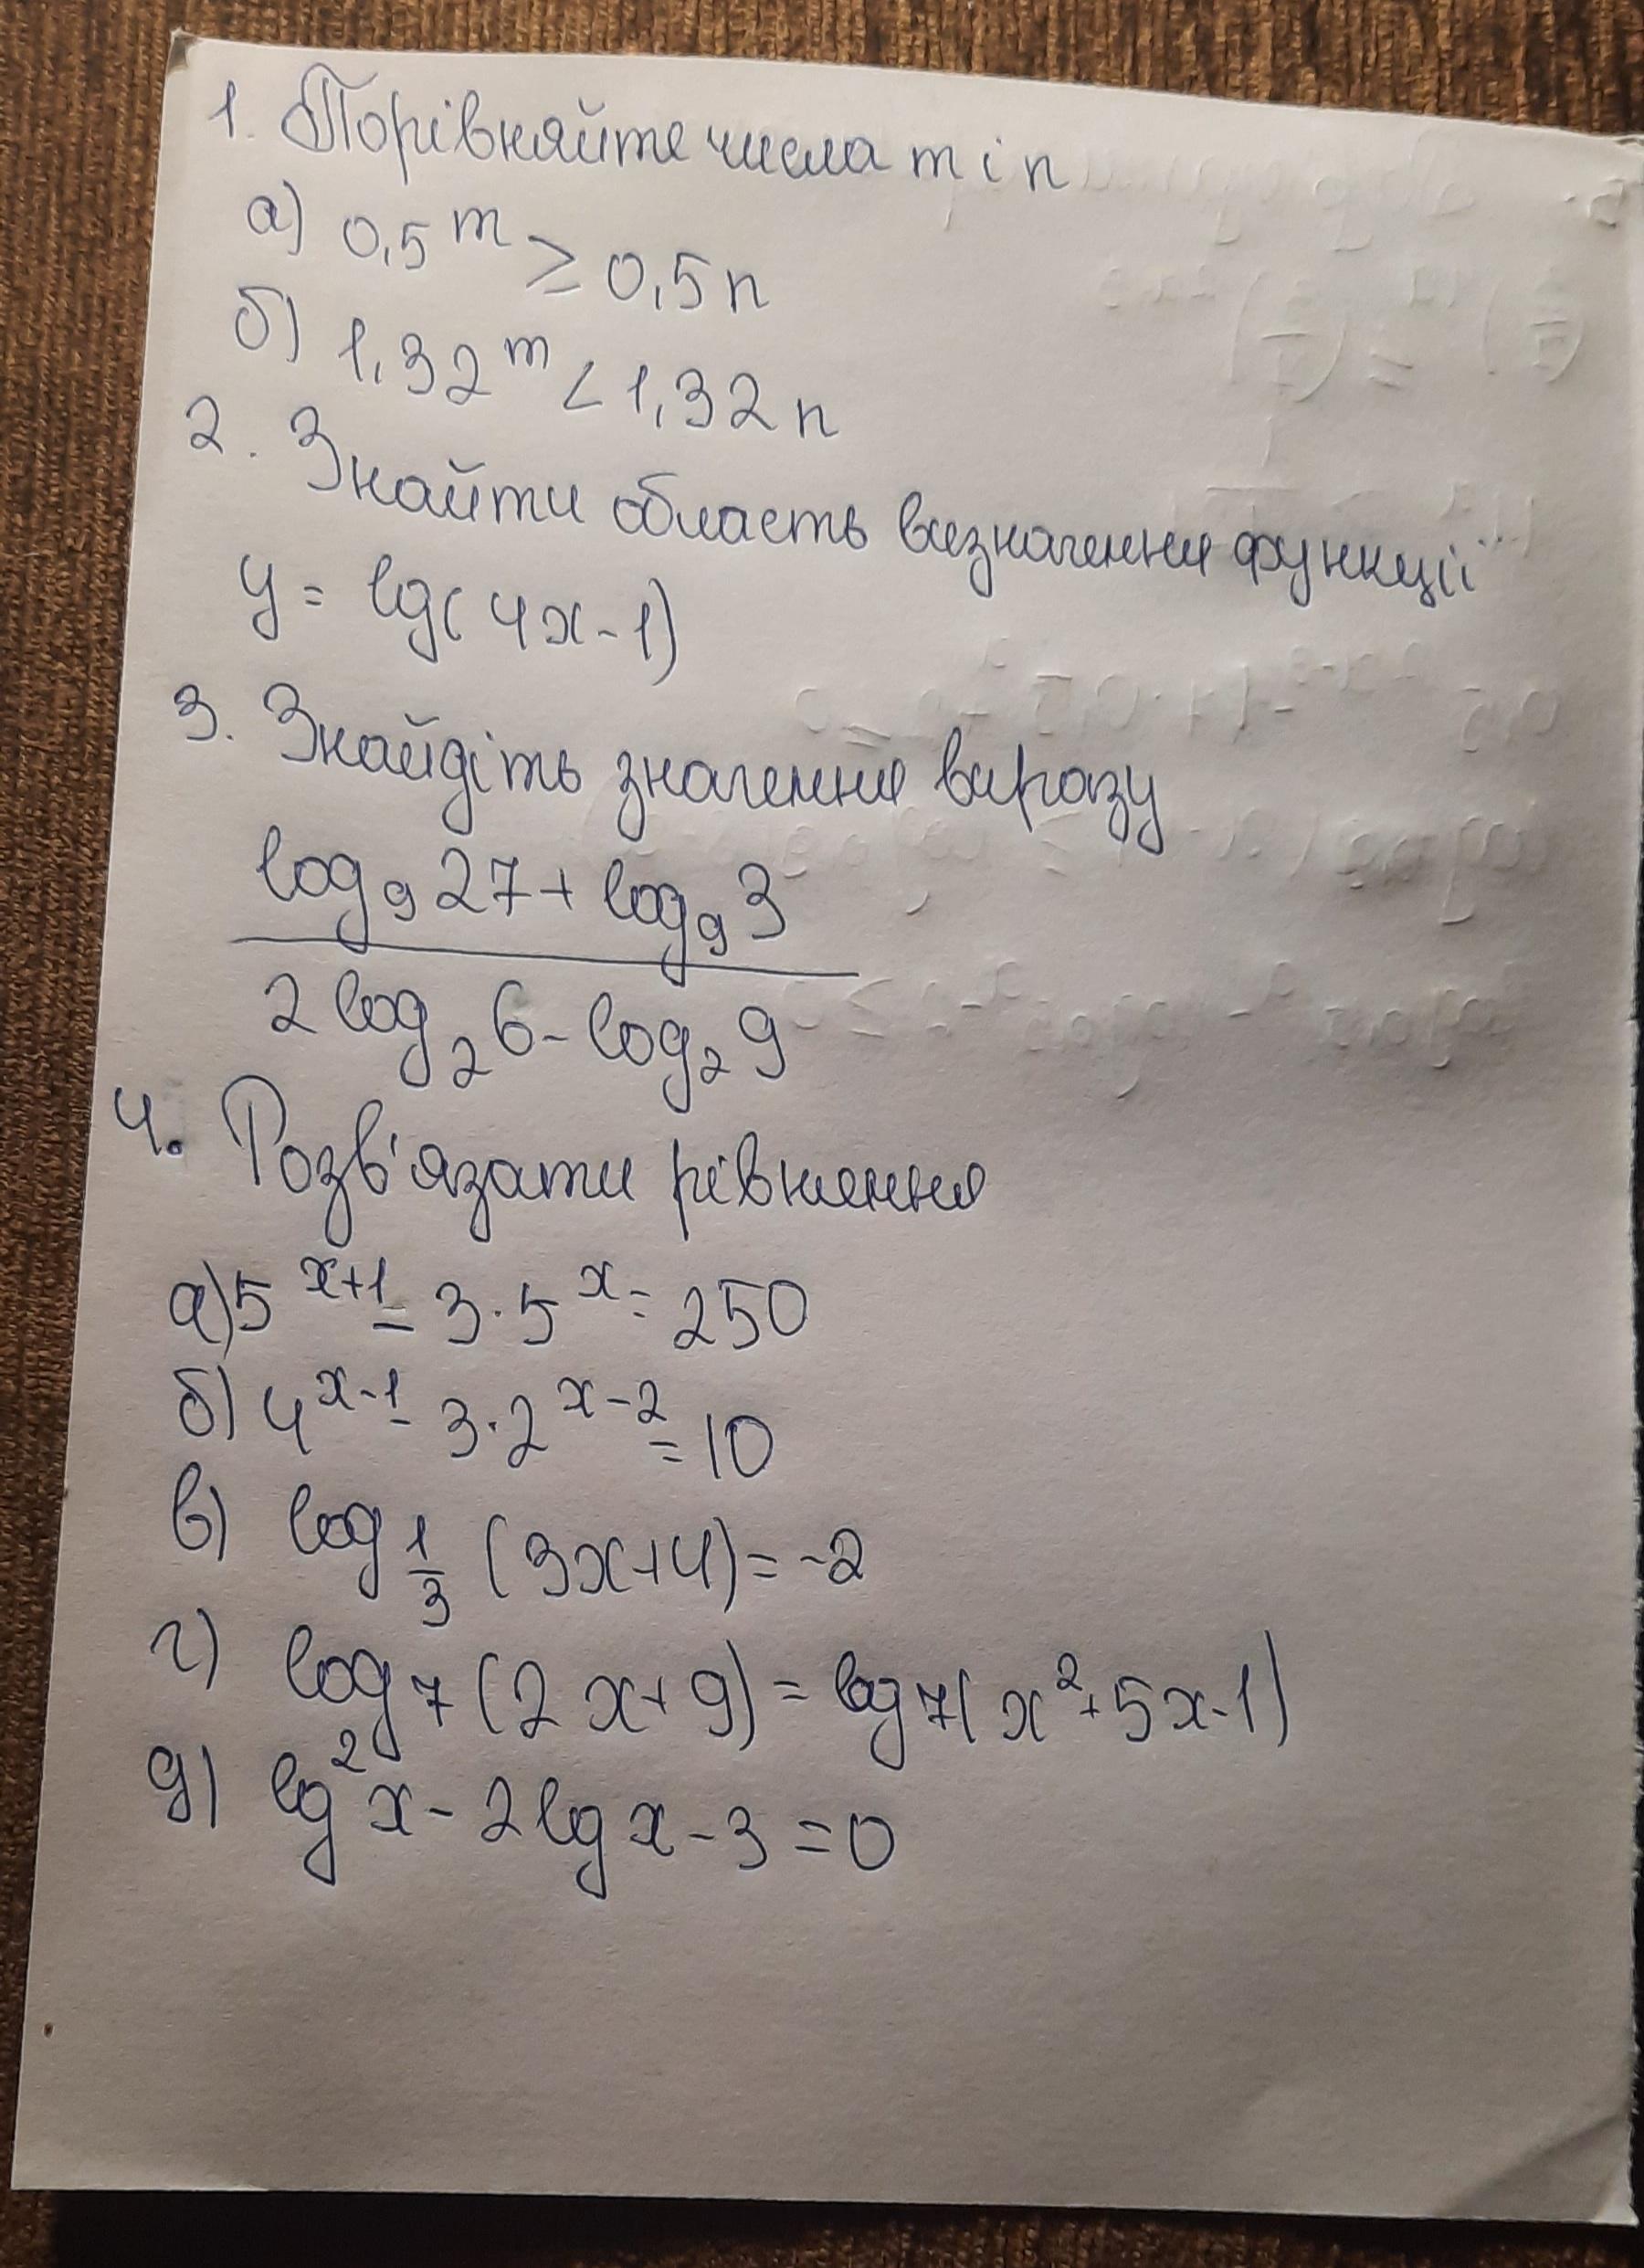 1. Порівняйте числа m і n
а) 0,5^m ≥ 0,5n
б) 1,32^m < 1,32n
2. Знайти область визначення функції
y = lg(4x-1)
3. Знайдіть значення виразу
log₉ 27 + log₉ 3
2 log₂ 6 - log₂ 9
4. Розв'язати рівняння
а) 5^(x+1) - 3·5^x = 250
б) 4^(x-1) - 3·2^(x-2) = 10
в) log_(1/3) (3x+4) = -2
г) log₇ (2x+9) = log₇ (x²+5x-1)
д) lg²x - 2lgx - 3 = 0